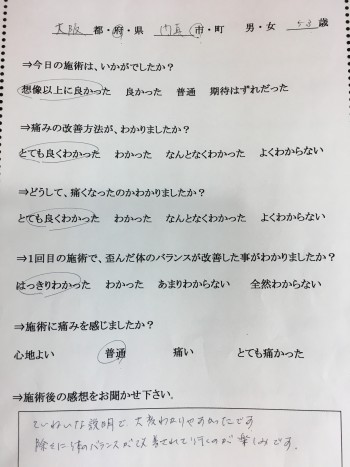 大阪 都・府・県 門真 市・町 男・女 53 歳
⇒今日の施術は、いかがでしたか?
想像以上に良かった 良かった 普通 期待はずれだった
⇒痛みの改善方法が、わかりましたか?
とても良くわかった わかった なんとなくわかった よくわからない
⇒どうして、痛くなったのかわかりましたか?
とても良くわかった わかった なんとなくわかった よくわからない
⇒1回目の施術で、歪んだ体のバランスが改善した事がわかりましたか?
はっきりわかった わかった あまりわからない 全然わからない
⇒施術に痛みを感じましたか?
心地よい 普通 痛い とても痛かった
⇒施術後の感想をお聞かせ下さい.
ていねいな説明で、大変わかりやすかったです
除々に体のバランスが改善されて行くのが楽しみです.